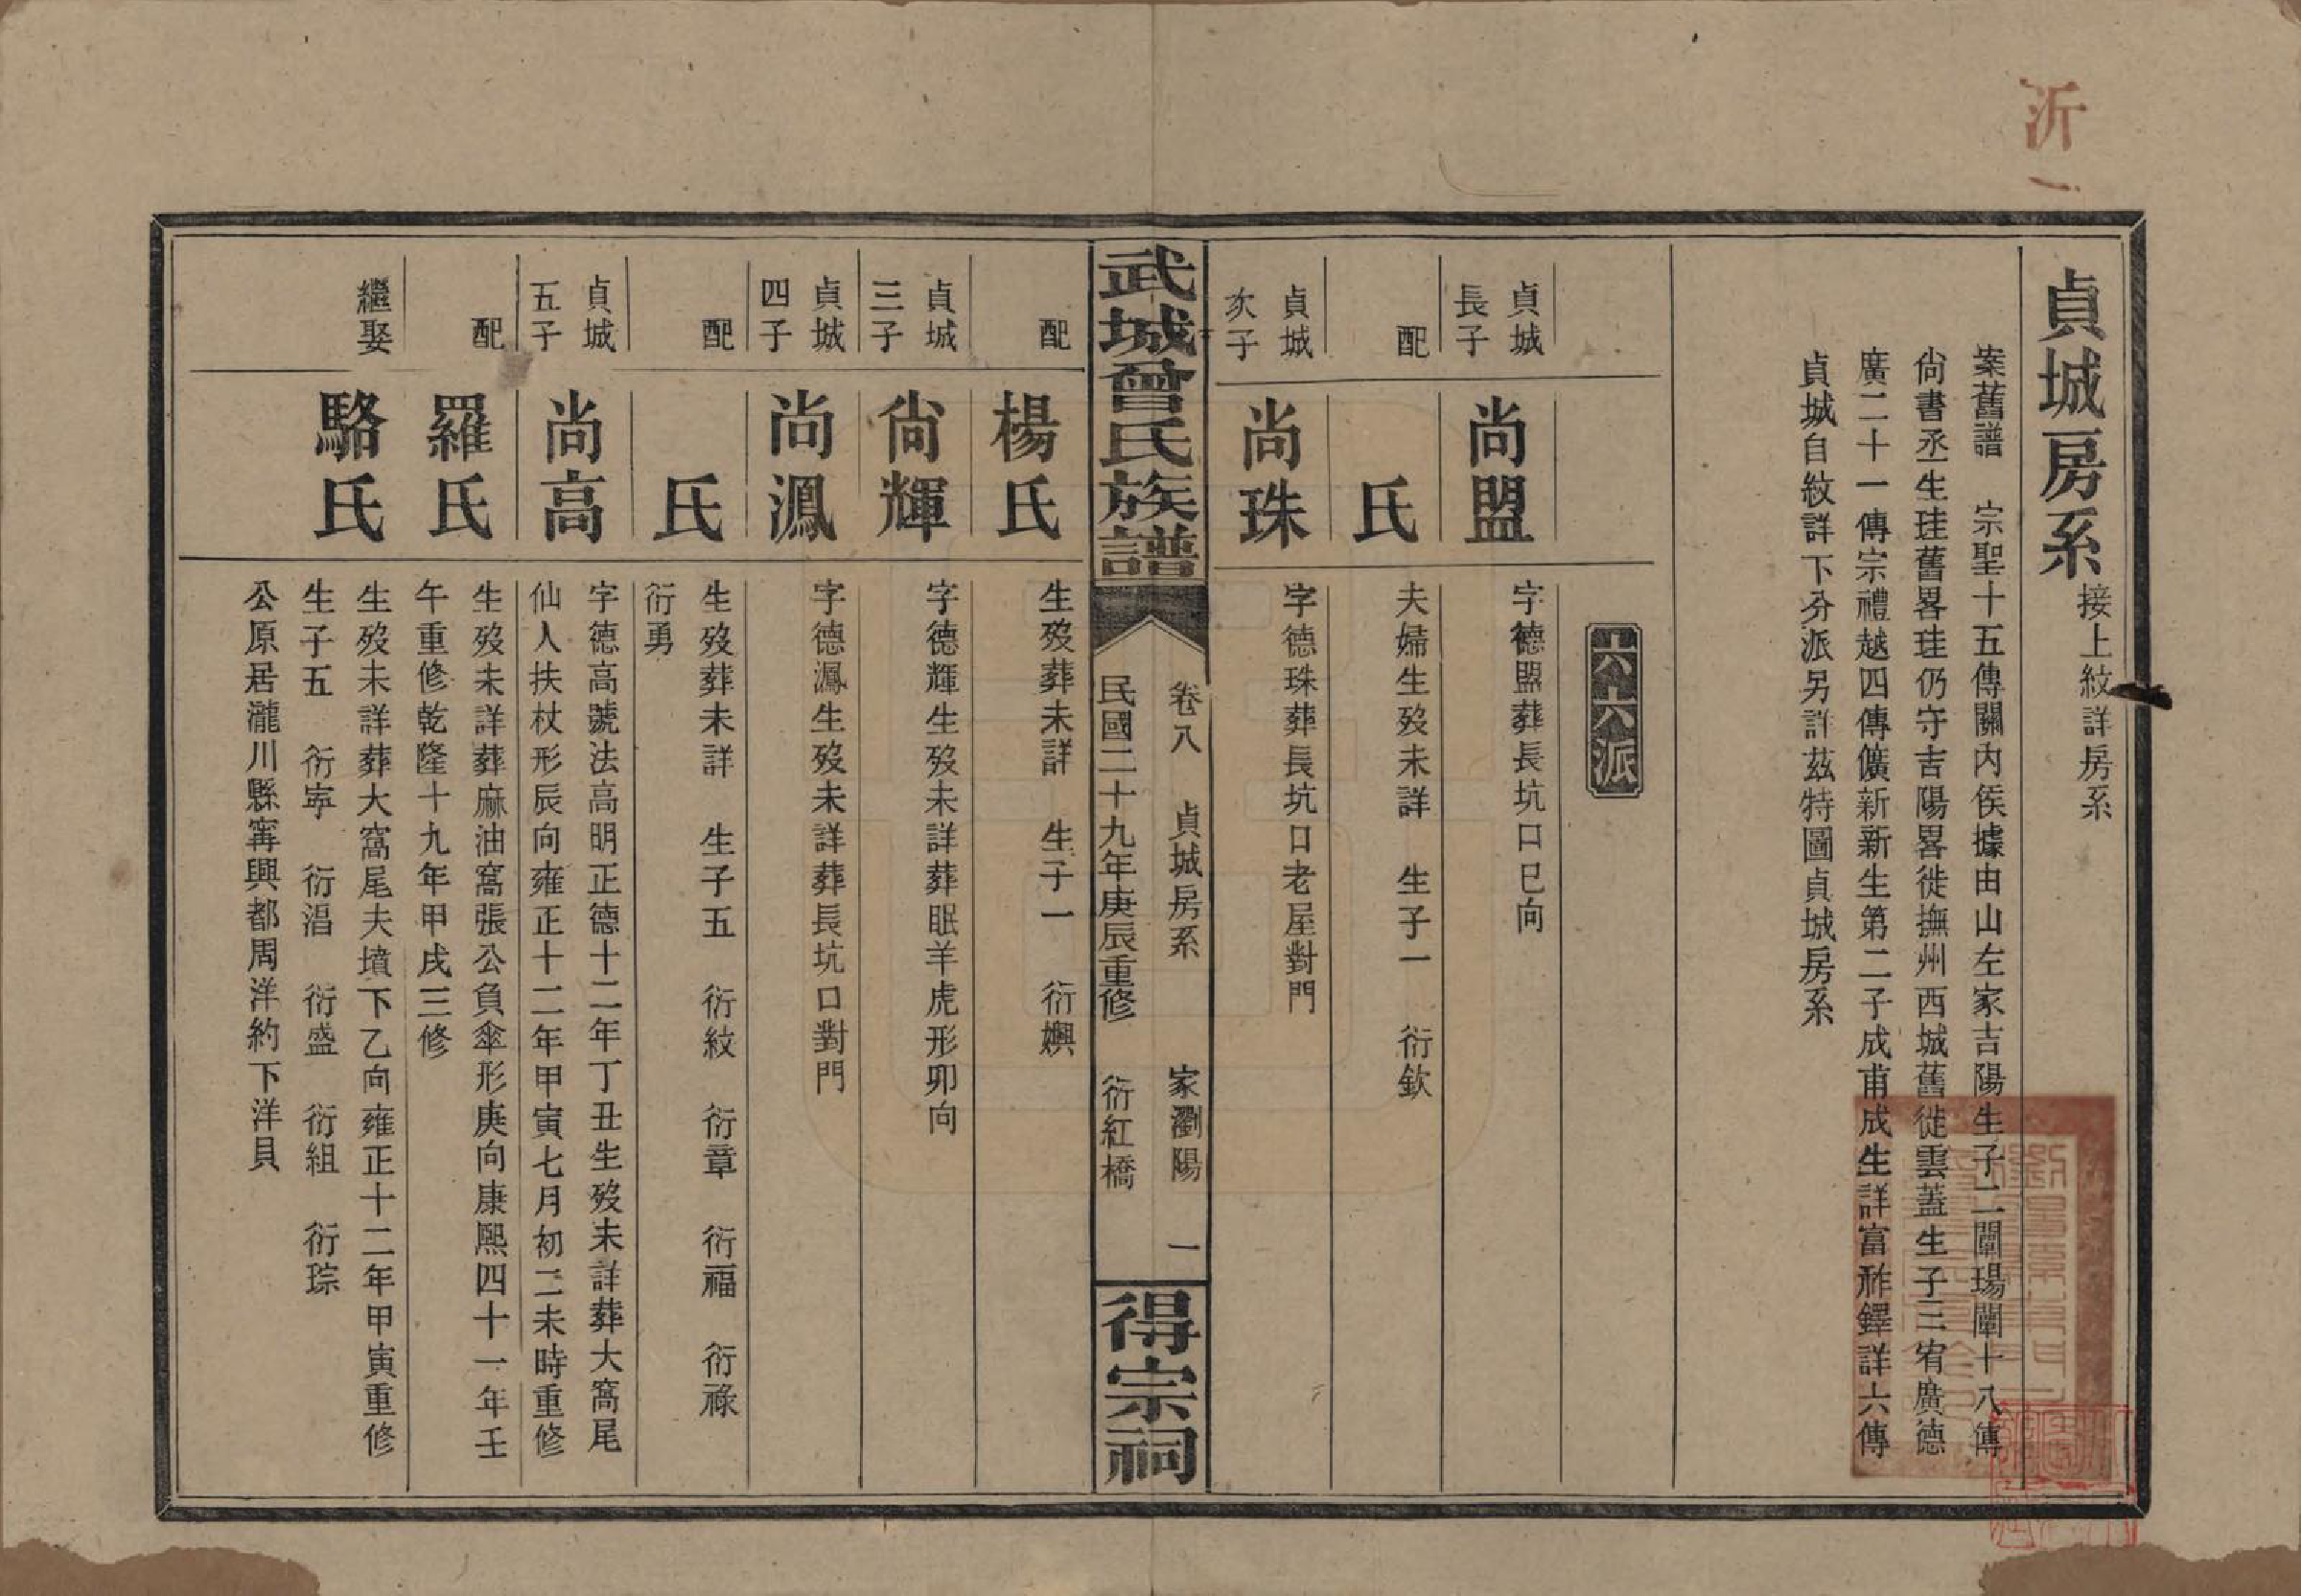 沂一
貞城房系 接上紋詳房系
案舊譜 宗聖十五傳關內侯據由山左家吉陽生子二闡瑒闡十八傳
尙書丞生珪舊畧珪仍守吉陽畧徙撫州西城舊徙雲蓋生子三宥廣德
廣二十一傳宗禮越四傳儣新新生第二子成甫成生詳富祚鐸詳六傳
貞城自紋詳下分派另詳茲特圖貞城房系
六十六派
貞城長子 尚盟 字德盟葬長坑口巳向
配 氏 夫婦生歿未詳 生子一 衍欽
貞城次子 尚珠 字德珠葬長坑口老屋對門
武城曾氏族譜 卷八 貞城房系 家瀏陽 一
民國二十九年庚辰重修 衍紅橋
得宗祠
配 楊氏 生歿葬未詳 生子一 衍嬩
貞城三子 尙輝 字德輝生歿未詳葬眠羊虎形卯向
貞城四子 尚鳳 字德鳳生歿未詳葬長坑口對門
配 氏 生歿葬未詳 生子五 衍紋 衍章 衍福 衍祿
衍勇
貞城五子 尚高 字德高號法高明正德十二年丁丑生歿未詳葬大窩尾
仙人扶杖形辰向雍正十二年甲寅七月初二未時重修
配 羅氏 生歿未詳葬麻油窩張公負傘形庚向康熙四十一年壬
午重修乾隆十九年甲戌三修
繼娶 駱氏 生歿未詳葬大窩尾夫墳下乙向雍正十二年甲寅重修
生子五 衍寕 衍㴘 衍盛 衍組 衍琮
公原居瀧川縣寗興都周洋約下洋貝